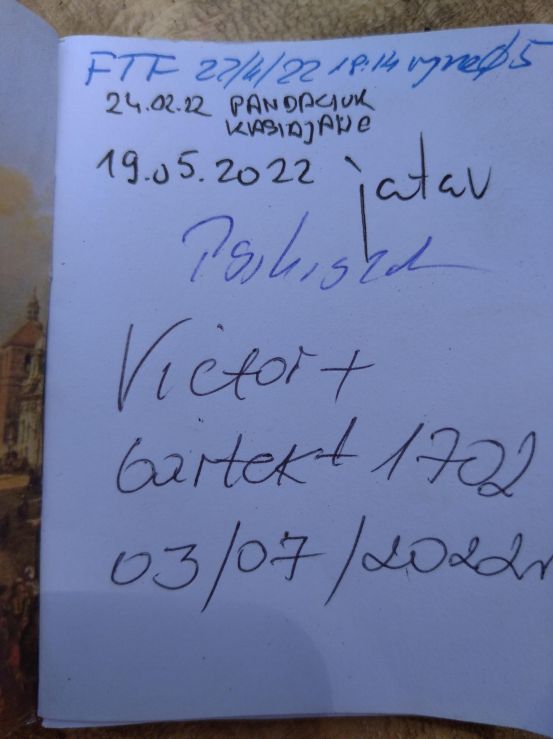 FTF 22/4/22 18:14
24.02.22 PANDACIUK
KASIAJAWE
19.05.2022 jatav
Victor +
Gartek + 1702
03/07/2022r